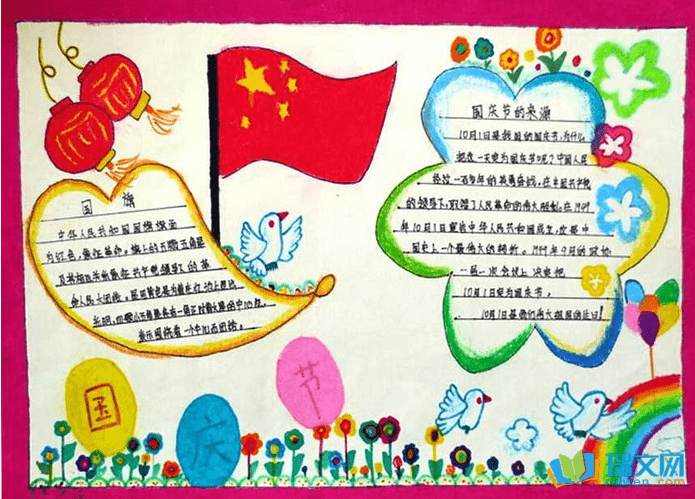 国旗
中华人民共和国国旗旗面
为红色，象征革命。旗上的五颗五角星
及其相互关系象征共产党领导下的革
命人民大团结。星用黄色是为着在红地上显出
光明，四颗小五角星各有一角正对着大星的中心点，
表示围绕着一个中心而团结。
国庆节的来源
10月1日是我国的国庆节，为什么
把这一天定为国庆节呢？中国人民
经过一百多年的英勇奋战，在中国共产党
的领导下，取得了人民革命的伟大胜利。在1949
年10月1日宣告中华人民共和国成立，这是中
国史上一个最伟大的转折。1949年9月的政协
一届一次会议上决定把
10月1日定为国庆节。
10月1日是我们伟大祖国的生日！
国庆节
瑞文网